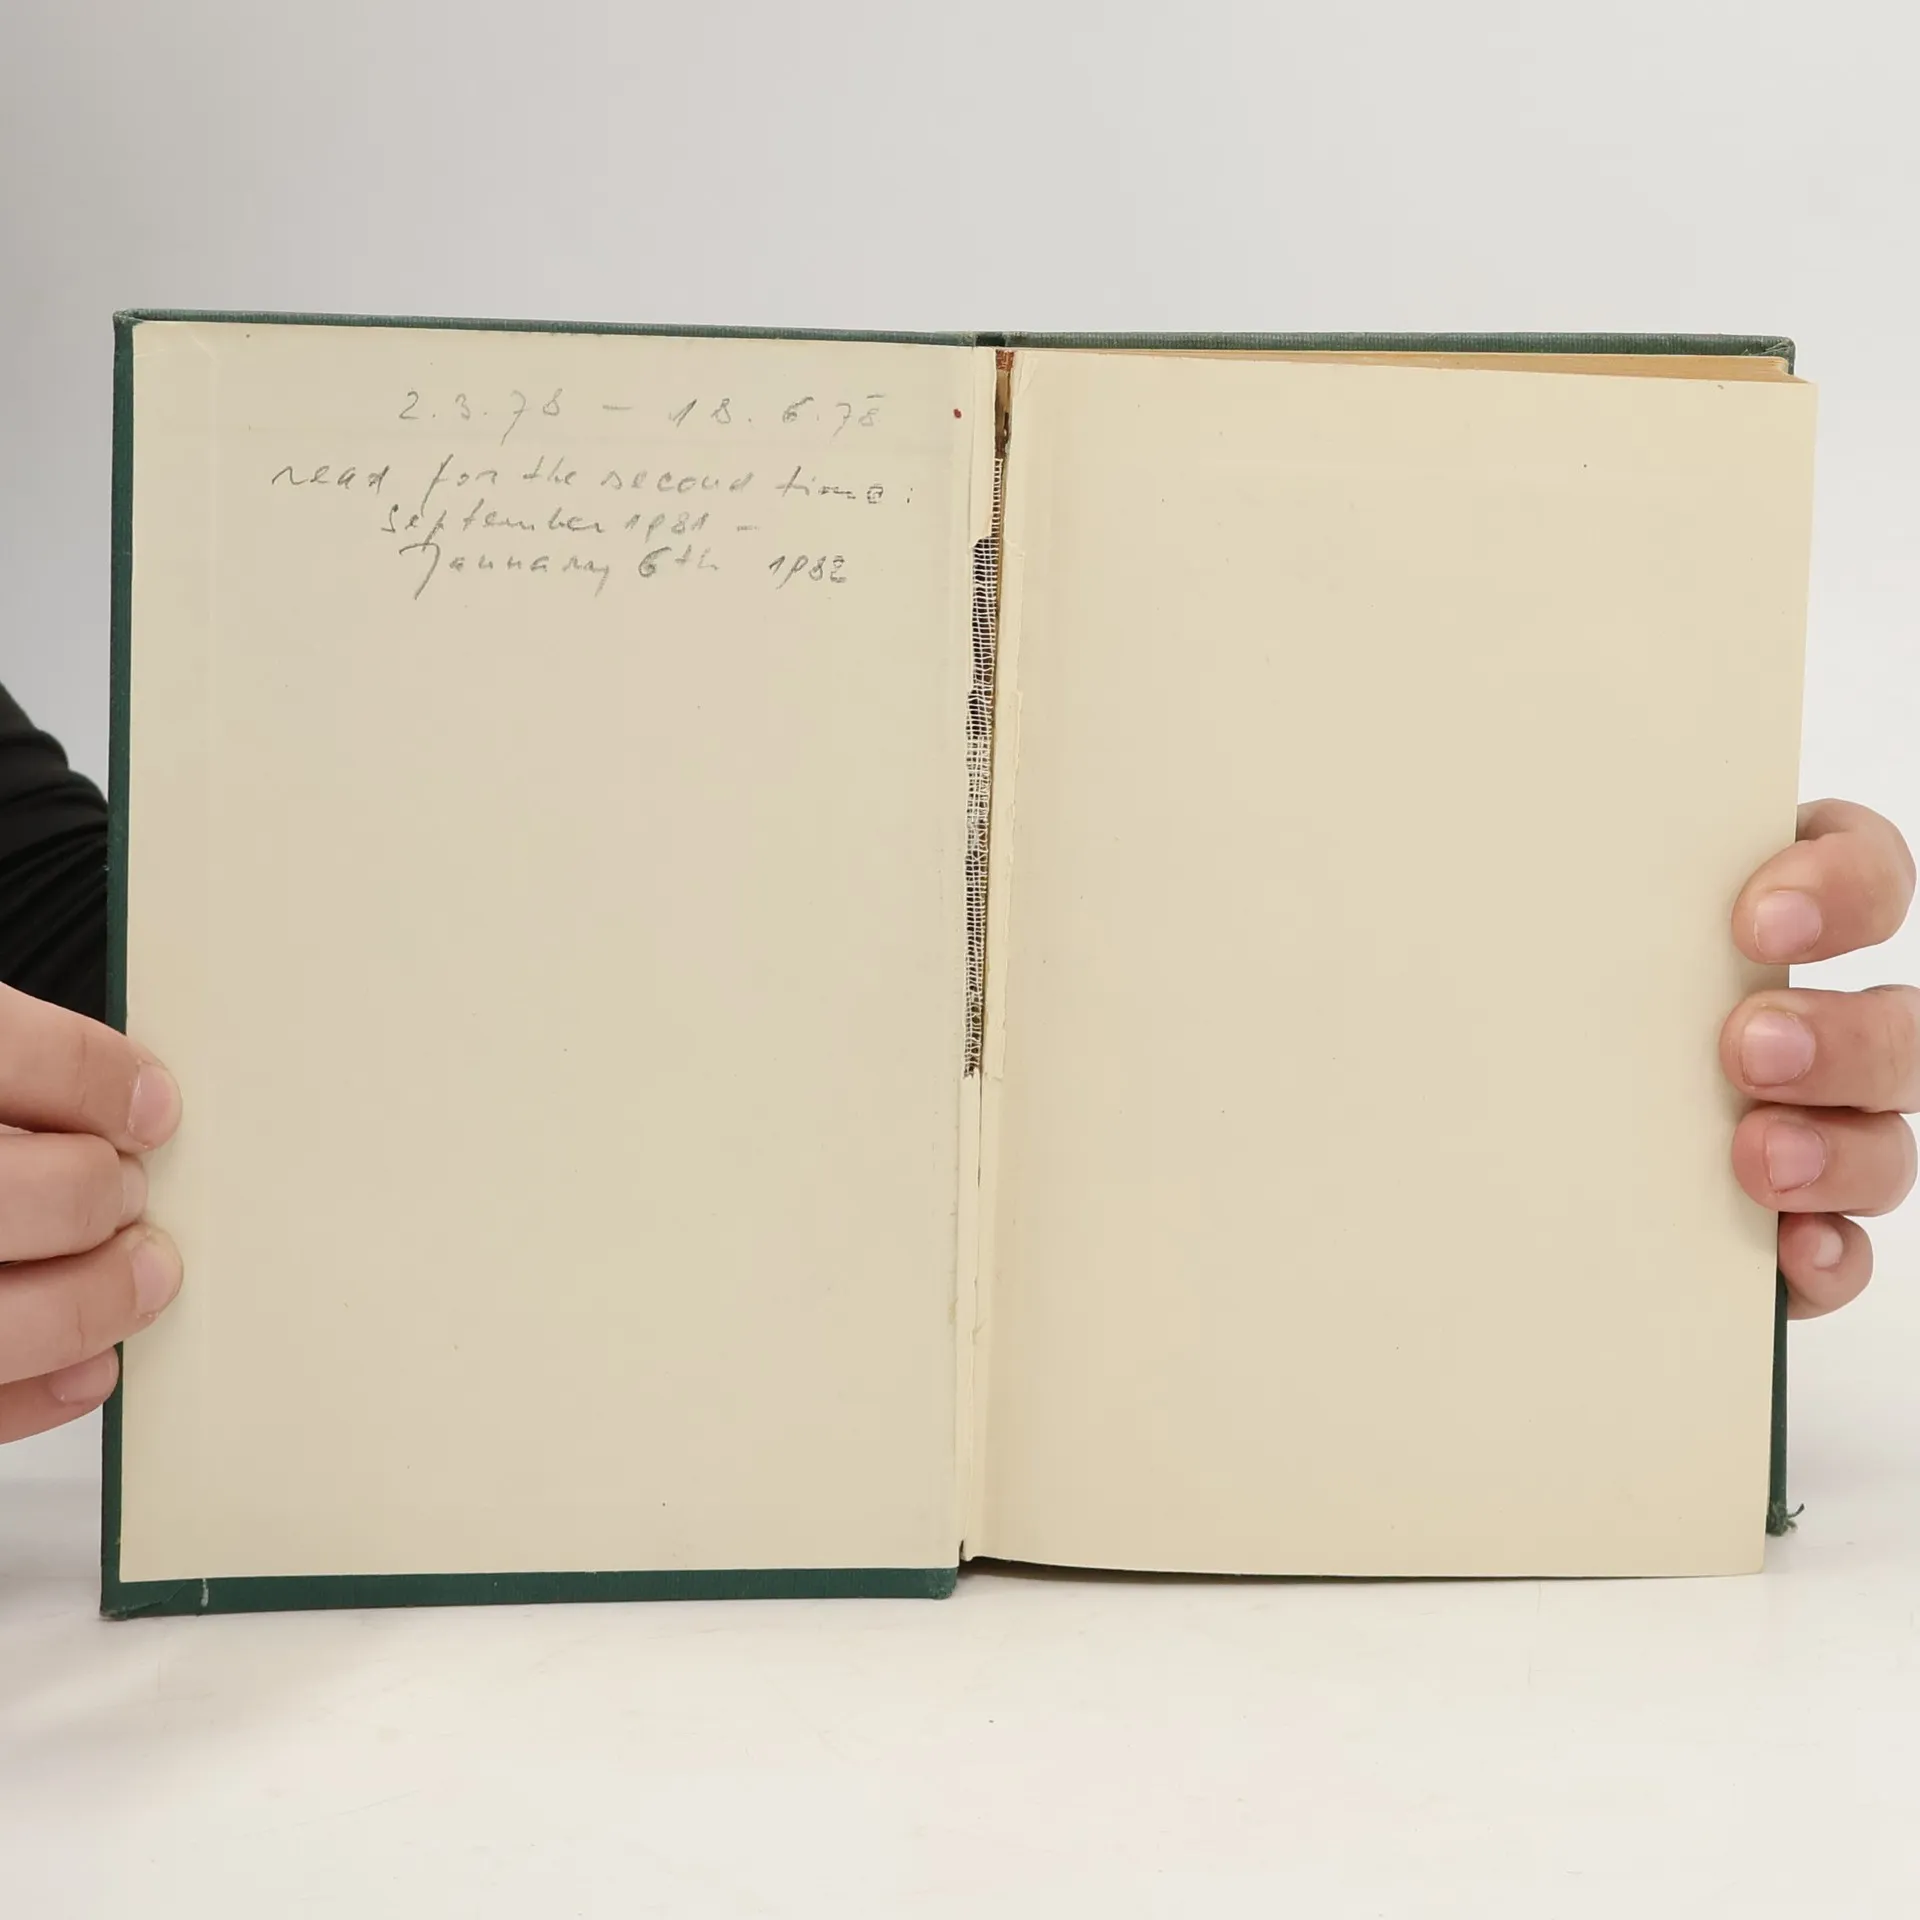 2.3.78 - 18.6.78
read for the second time:
September 1981 -
January 6th 1982